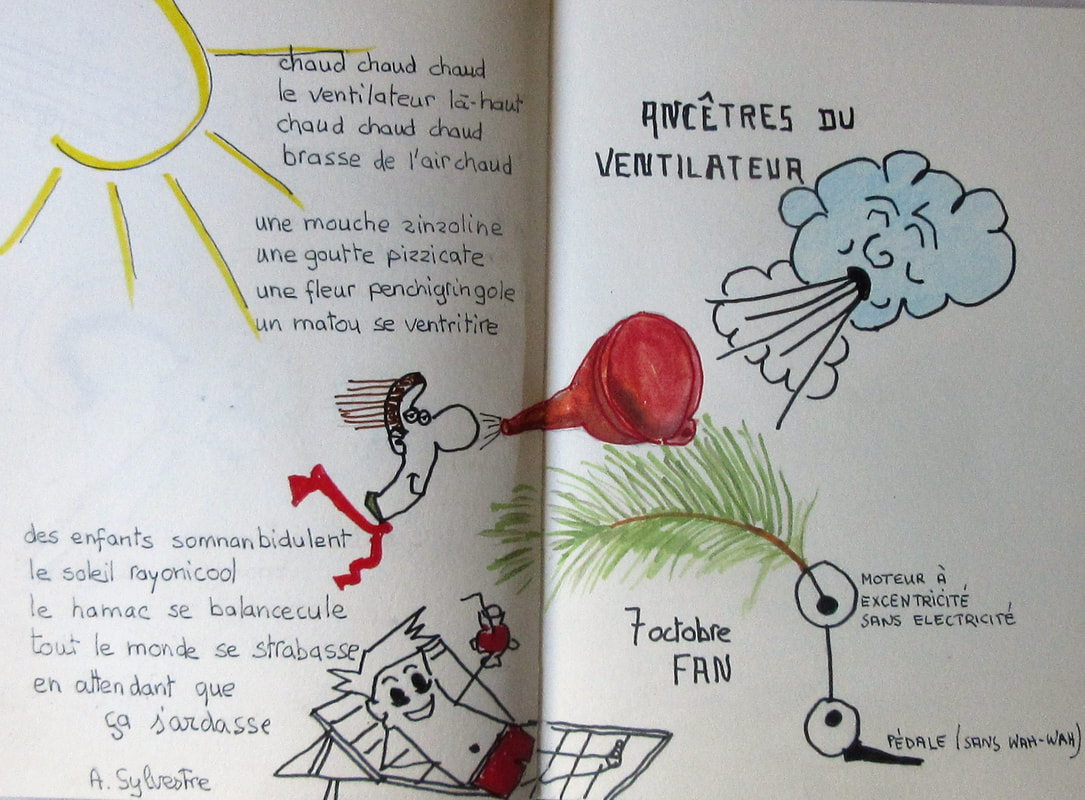 chaud chaud chaud
le ventilateur là-haut
chaud chaud chaud
brasse de l'air chaud
une mouche zinzoline
une goutte pizzicate
une fleur penchigringole
un matou se ventritire
des enfants somnanbidulent
le soleil rayonicool
le hamac se balancecule
tout le monde se strabasse
en attendant que
ça s'ardasse
A. Sylvestre
ANCÊTRES DU
VENTILATEUR
MOTEUR À
EXCENTRICITÉ
SANS ELECTRICITÉ
7 octobre
FAN
PÉDALE (SANS WAH-WAH)